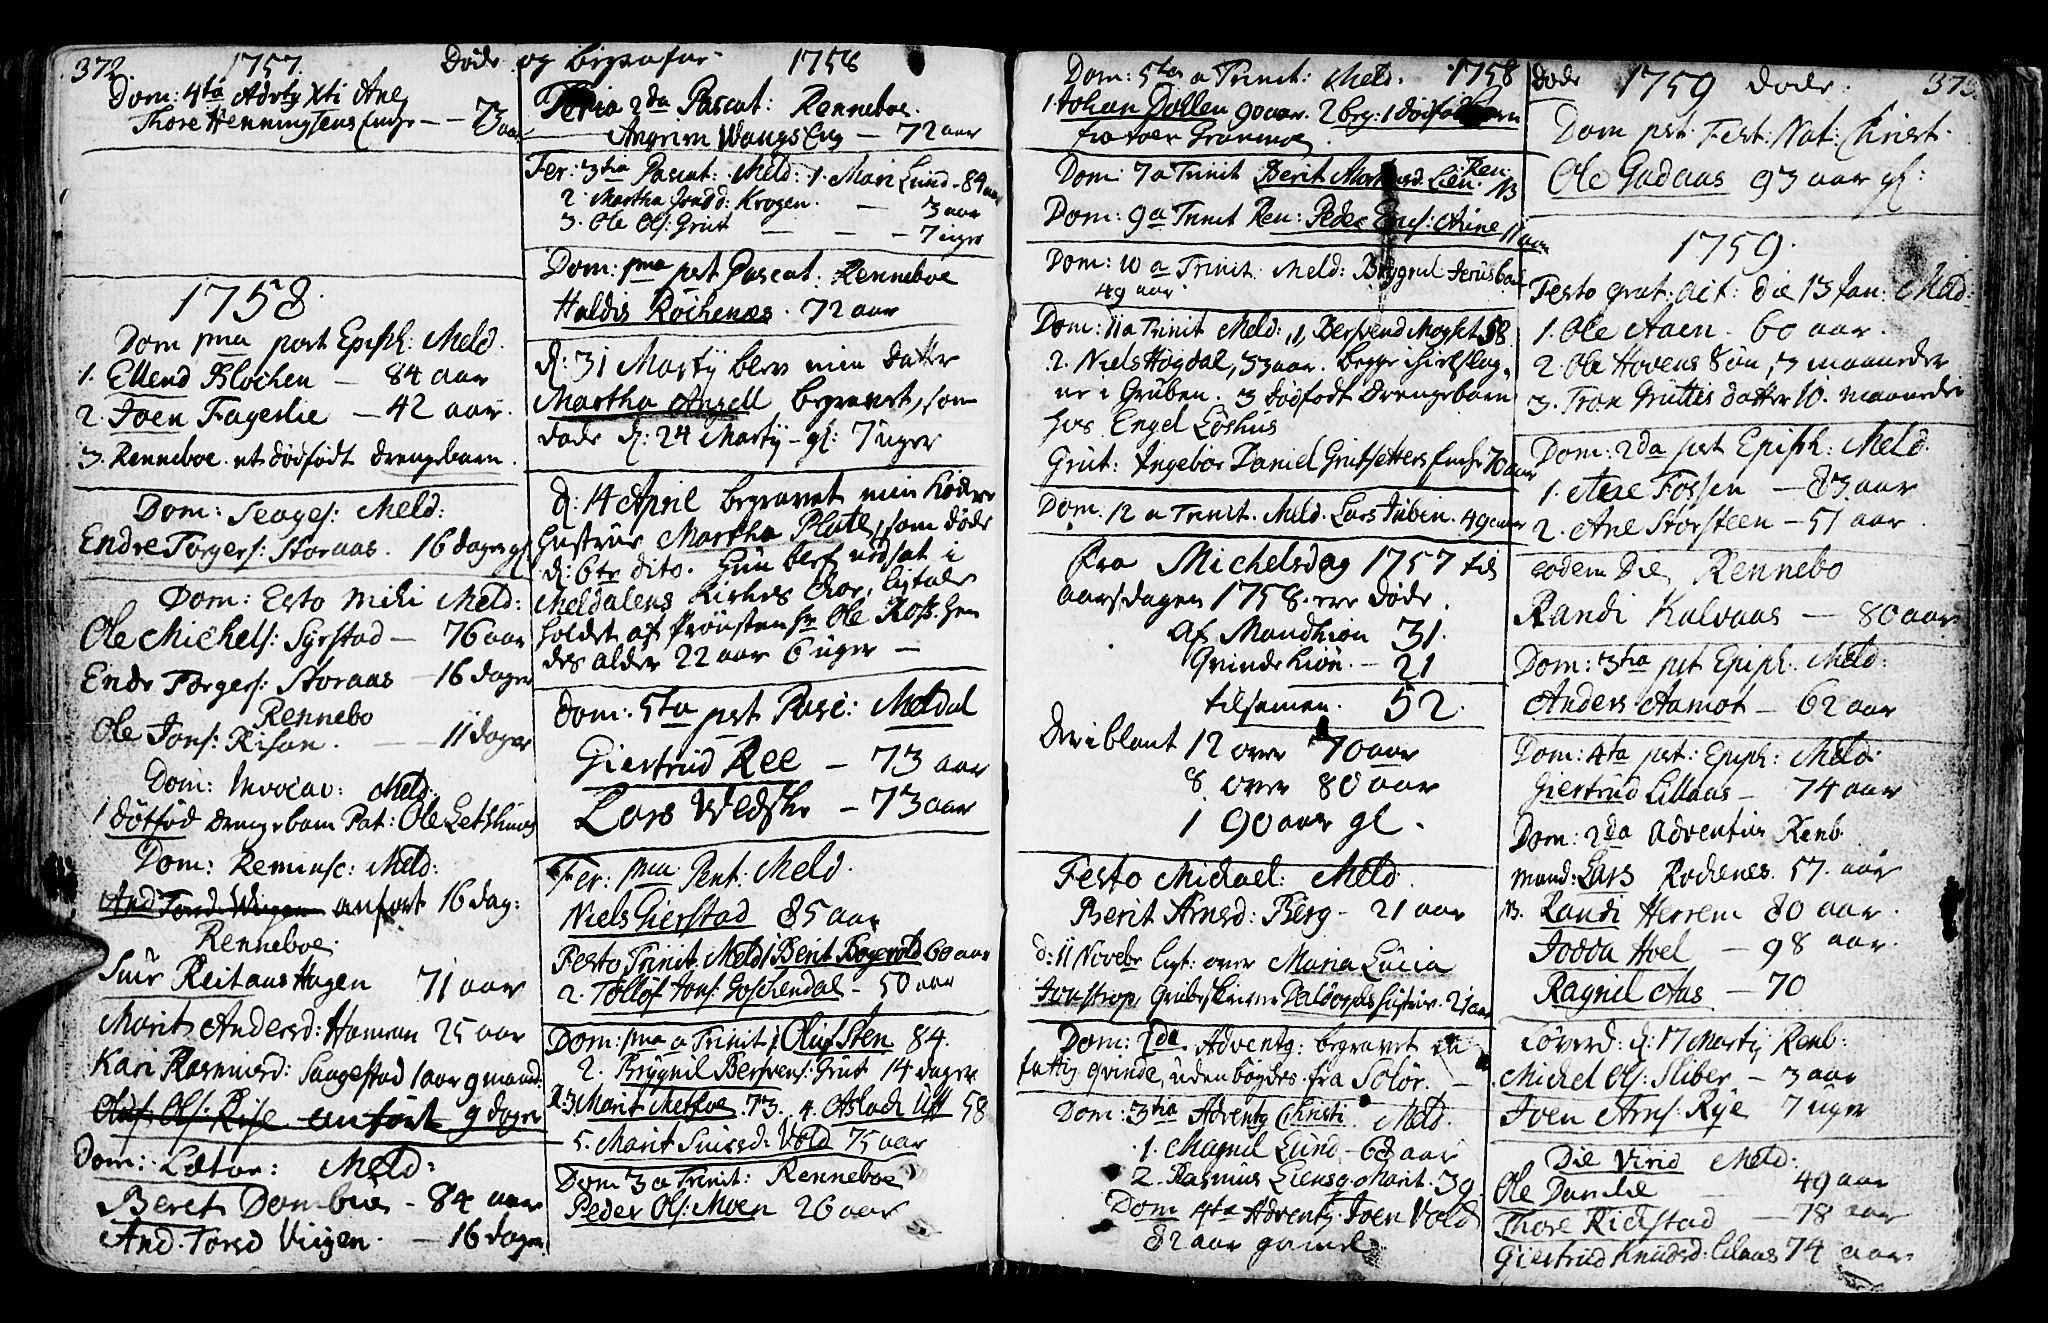 372. 1757. Døde og begrafne 1758
Dom: 4ta Advtg Xti Ane
Thore Henningsens Enche - - 73 aar
1758.
Dom pma post Epiph: Meld.
1. Ellend Blochen — 84 aar
2. Joen Fagerlie — 42 aar.
3. Renneboe. et dødfødt drengebarn.
Dom: Seages: Meld:
Endre Torgers: Storaas. 16 dager gl
Dom: Esto Mihi Meld:
Ole Michels: Syrstad — 76 aar
Endr Torgers: Storaas — 16 dager
Rennebo
Ole Jons: Risan. — 11 dager
Dom: Invocav: Meld:
1 døtfød drengebarn Pat: Ole Letshuus
Dom: Reminsc: Meld:
And Torsd Wiigen anført 16 dag:
Renneboe.
Siur Reitaas Hagen 71 aar
Marit Andersd: Haman 25 aar
Kari Rasmusd: Saugestad 1 aar 9 maand:
Oluf Ols: Rise anført 9 dager
Dom: Lætar: Meld:
Beret Dombue - 84 aar
And. Torsd Viigen. — 16 dager
Feria 2da Pascat: Renneboe.
Angrim Wangs Eng — 72 aar
Fer: 3tia Pascat: Meld: 1. Mari Lund - 84 aar
2. Martha Jondd: Krogen. — 3 aar
3. Ole Ols: Grut — — - 7 uger
Dom: pma pst Pascat: Renneboe
Haldis Rochenæs. 72 aar
d: 31 Martij blev min Datter
Martha Angell begravet, som
døde d: 24 Martij - gl: 7 uger
d: 14 April begravet min kiære
hustrue Martha Plute, som døde
d: 6te dito. Hun blef nedsat i
Meldalens Kirkes Chor, ligtale
holdet af Prousten hr Ole Ross. hen
des alder 22 aar 6 uger —
Dom: 5ta pst Pasc: Meldal
Giertrud Ree — 73 aar
Lars Wedshr — 73 aar
Fer: pma Pent: Meld.
Niels Gierstad 85 aar
Festo Trinit. Meld 1 Berit Bogevold 60 aar
2. Tollof Jons: Goschendal — 50 aar
Dom: pma a Trinit 1 Oluf Sten 84.
2. Brygnil Bersvens: Grut 14 dager
3 Marit Metsvoe 73. 4. Aslach Uff 58
5. Marit Siursd: Vold 75 aar
Dom 3 a Trinit: Renneboe
Peder Ols: Moen 26 aar
Dom: 5ta a Trinit: Meld. 1758
1. Johan Dollen 90 aar. 2 beg: 1 dødfød barn
fra Grannus.
Dom: 7 a Trinit Berit Lien. Ren: NB
Dom: 9 a Trinit Ren: Peder Ens: Arine 11 aar
Dom: 10 a Trinit: Meld: Brygnil Jerusbak
49 aar
Dom: 11 a Trinit Meld: 1, Bersvend Mogset 58
2. Niels Hogdal, 33 aar. begge hielslag,,
ne i Gruben. 3 dødfødt Drengebarn
hos Engel Løshus
Grut: Ingebor Daniel Grutsetters Enche 70 aar
Dom: 12 a Trinit. Meld. Lars Juben. 49 aar
Fra Michelsdag 1757 til
aarsdagen 1758. ere døde.
af Mandkion 31.
Qvindekiøn. - 21
tilsamen. 52.
Deriblant 12 over 70 aar
8. over 80 aar
1 90 aar gl.
Festo Michael: Meld.
Berit Arnsd: Berg - 21 aar
d: 11 Novebr ligt: over Maria Lucia
Jonstrop, Grubeskrivr Daldorphs hustrue. 21 aar
Dom: 2da Adventg: begravet en
fattig qvinde, uden bøgdes. fra Solør. —
Dom: 3tia Adventg Christi Meld.
1. Magnil Lund - 68 aar
2. Rasmus Liensg. Marit. 39.
Dom 4ta Adventg. Joen Vold
82 aar gamel
Døde 1759 døde. 373.
Dom pst: Fest: Nat: Christ.
Ole Gadaas 93 aar gl:
1759.
Festo grat: act: die 13 Jan: Meld:
1. Ole Aaen. 60 aar.
2. Ole Hovens Søn, 3 maaneder
3. Tron Gruttis datter 10. maaneder
Dom: 2da pst Epiph: Meld.
1. Ane Fossen — 83 aar
2. Ane Storsteen — 51 aar.
eodem Die Rennebo
Randi Kalvaas — 80 aar.
Dom: 3tia pst Epiph: Meld:
Anders Aamot — 62 aar
Dom: 4ta pst: Epiph: Meld:
Giertrud Lillaas — 74 aar
Dom: 2da Adventus Renb.
Mand: Lars Rochenes. 57. aar
NB. Randi Herrem 80 aar.
Jodda Hoel — 98 aar.
Ragnil Aas — 70
Løverd: d: 17 Martij Renb:
Michel Ols: Sliber — 3 aar
Joen Arns: Rye 7 uger
Die Virid Meld:
Ole Damlie — 49 aar
Thore Rickstad — 78 aar
Giertrud Knudsd: Lilaas 74 aar.